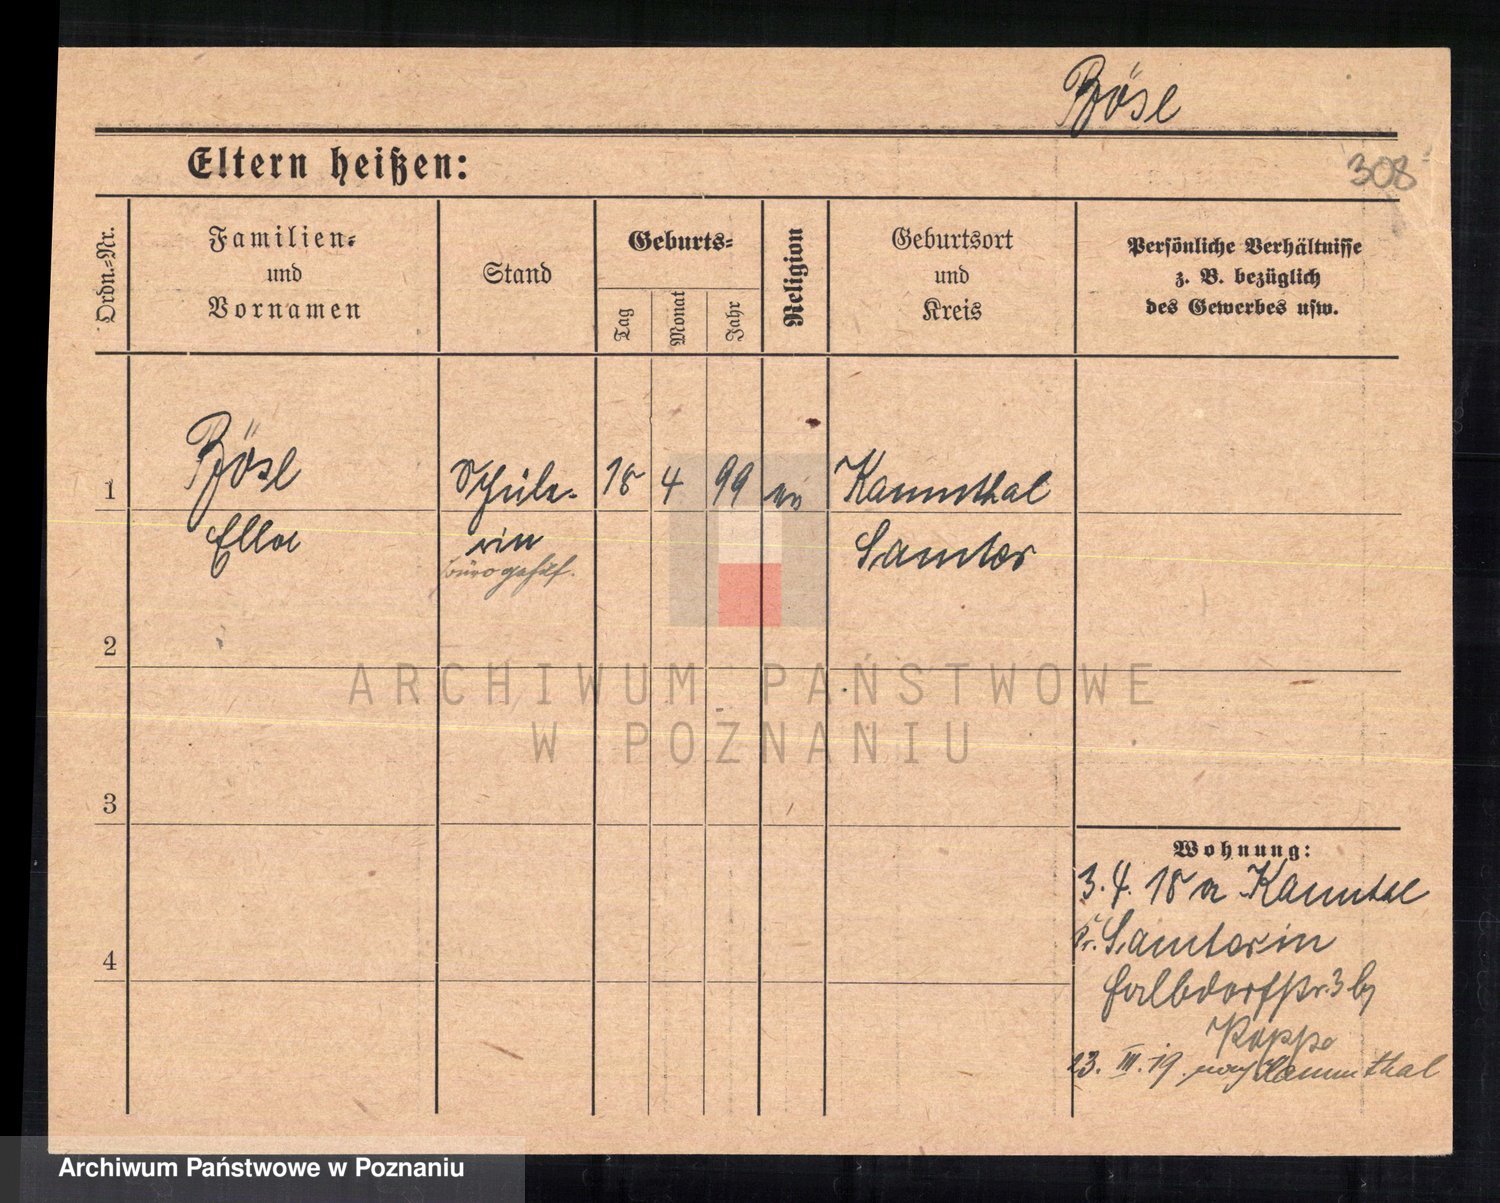 Böse
Eltern heißen:
308
Ordn.=Nr.
Familien=
und
Vornamen
Stand
Geburts=
Tag
Monat
Jahr
Religion
Geburtsort
und
Kreis
Persönliche Verhältnisse
z. B. bezüglich
des Gewerbes usw.
1
Böse
Ella
Schüle-
rin
bürogehilf.
18
4
99
ev
Kammthal
Samter
2
3
4
Wohnung:
3. 4. 18 a Kammthal
Kr. Samter in
str. 3 b/
Koppe
23. III. 19. nach Kammthal
ARCHIWUM PAŃSTWOWE
W POZNANIU
Archiwum Państwowe w Poznaniu